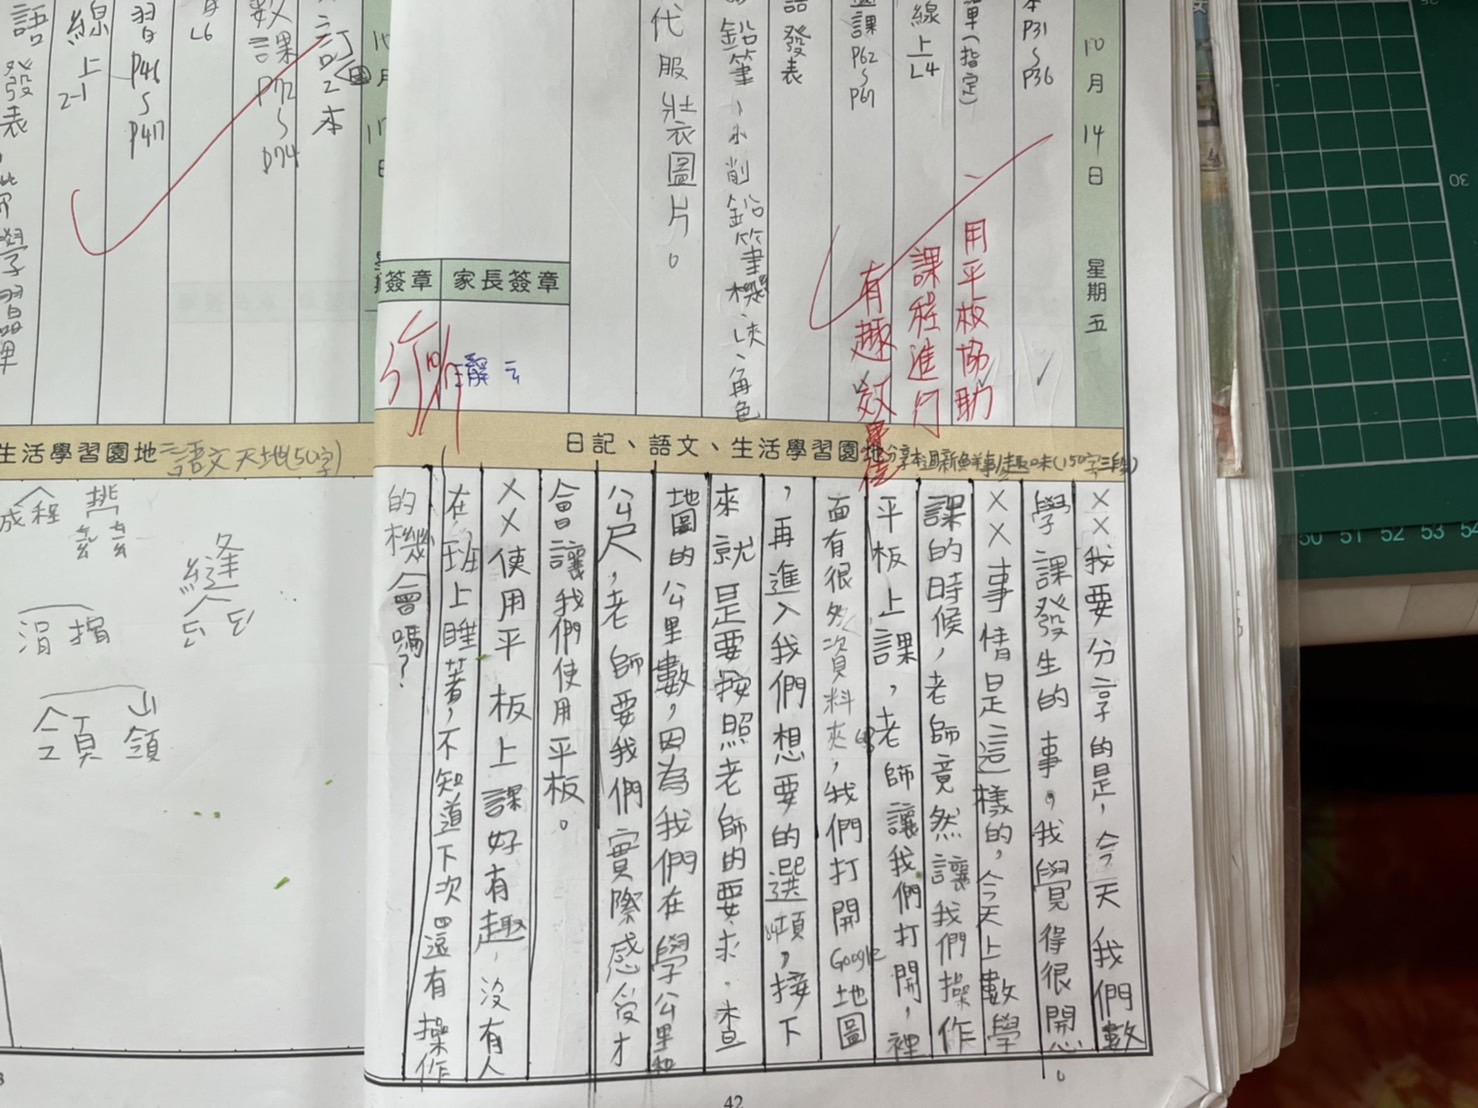 10月14日 星期五
本P31~P36
單(指定)
線上L4
課P62~P67
語發表
鉛筆、水削鉛筆
角色
代服裝衣圖片。
簽章
家長簽章
用平板協助
課程進行
有趣
日記、語文、生活學習園地
××我要分享的是,今天我們數
學課發生的事,我覺得很開心。
××事情是這樣的,今天上數學
課的時候,老師竟然讓我們操作
平板上課,老師讓我們打開,裡
面有很多資料夾,我們打開Google地圖
,再進入我們想要的選項,接下
來就是要按照老師的要求,查
地圖的公里數,因為我們在學公里和
公尺,老師要我們實際感受才
會讓我們使用平板。
××使用平板上課好有趣,沒有人
在班上睡著,不知道下次還有操作
的機會嗎?
42
10月17日
訂正2本
數課P72~P74
L6
習P46~P47
線上2-1
語發表
學習單
生活學習園地
語文天地(50字)
程
縫
捐
領
嶺
30
50 51 52 53 54